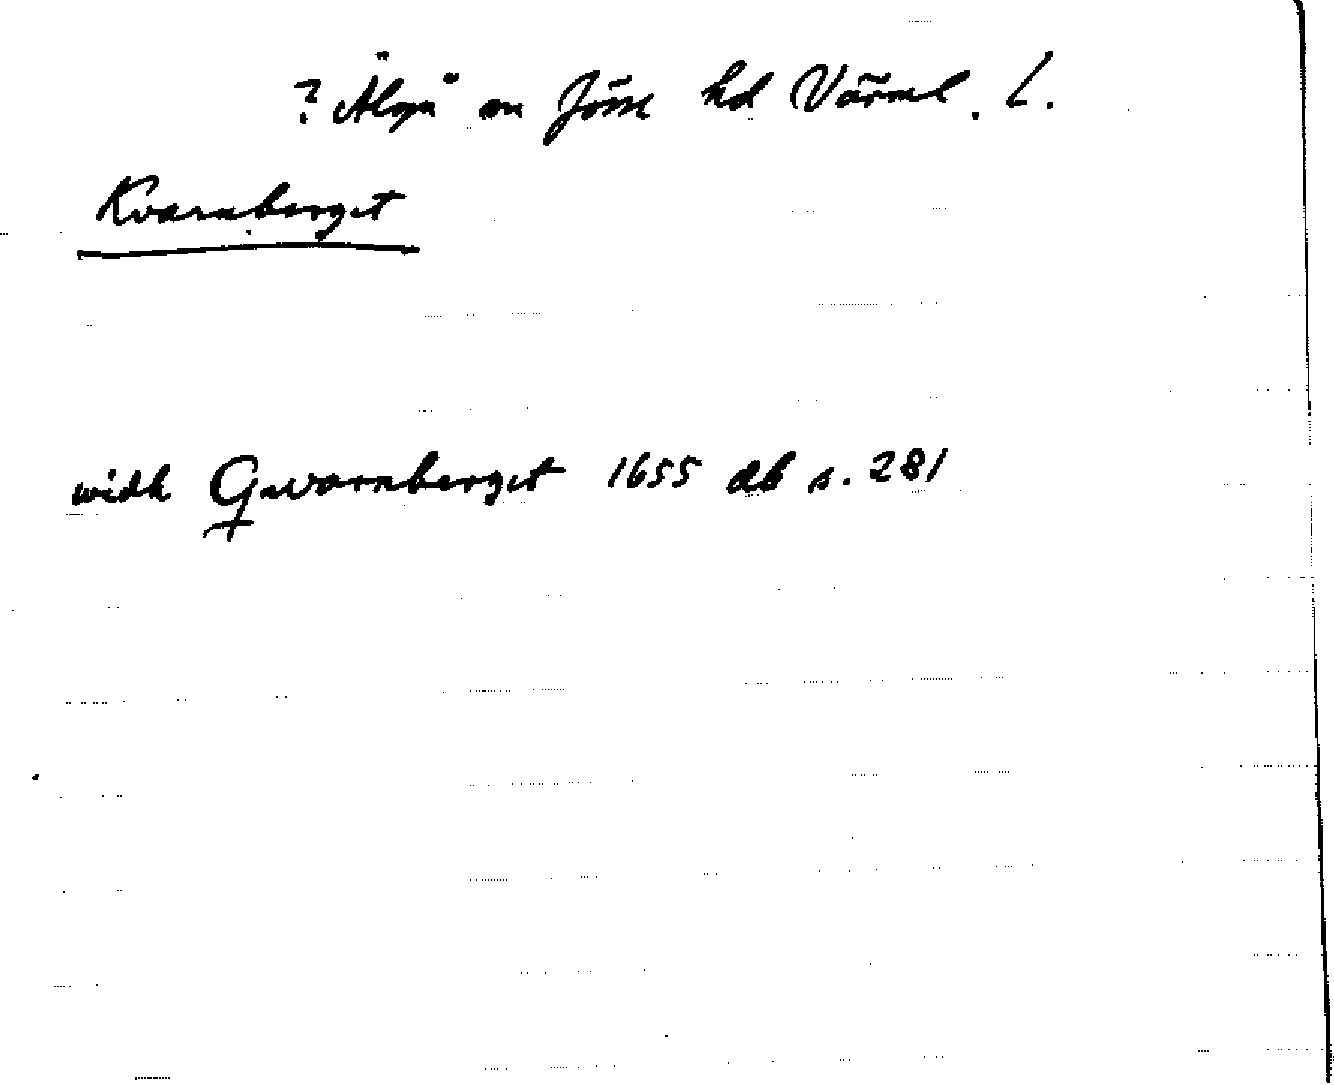 ? Älgå sn Jösse hd Värml. L.
Kvarnberget
widh Qwarnberget 1655 db s. 281